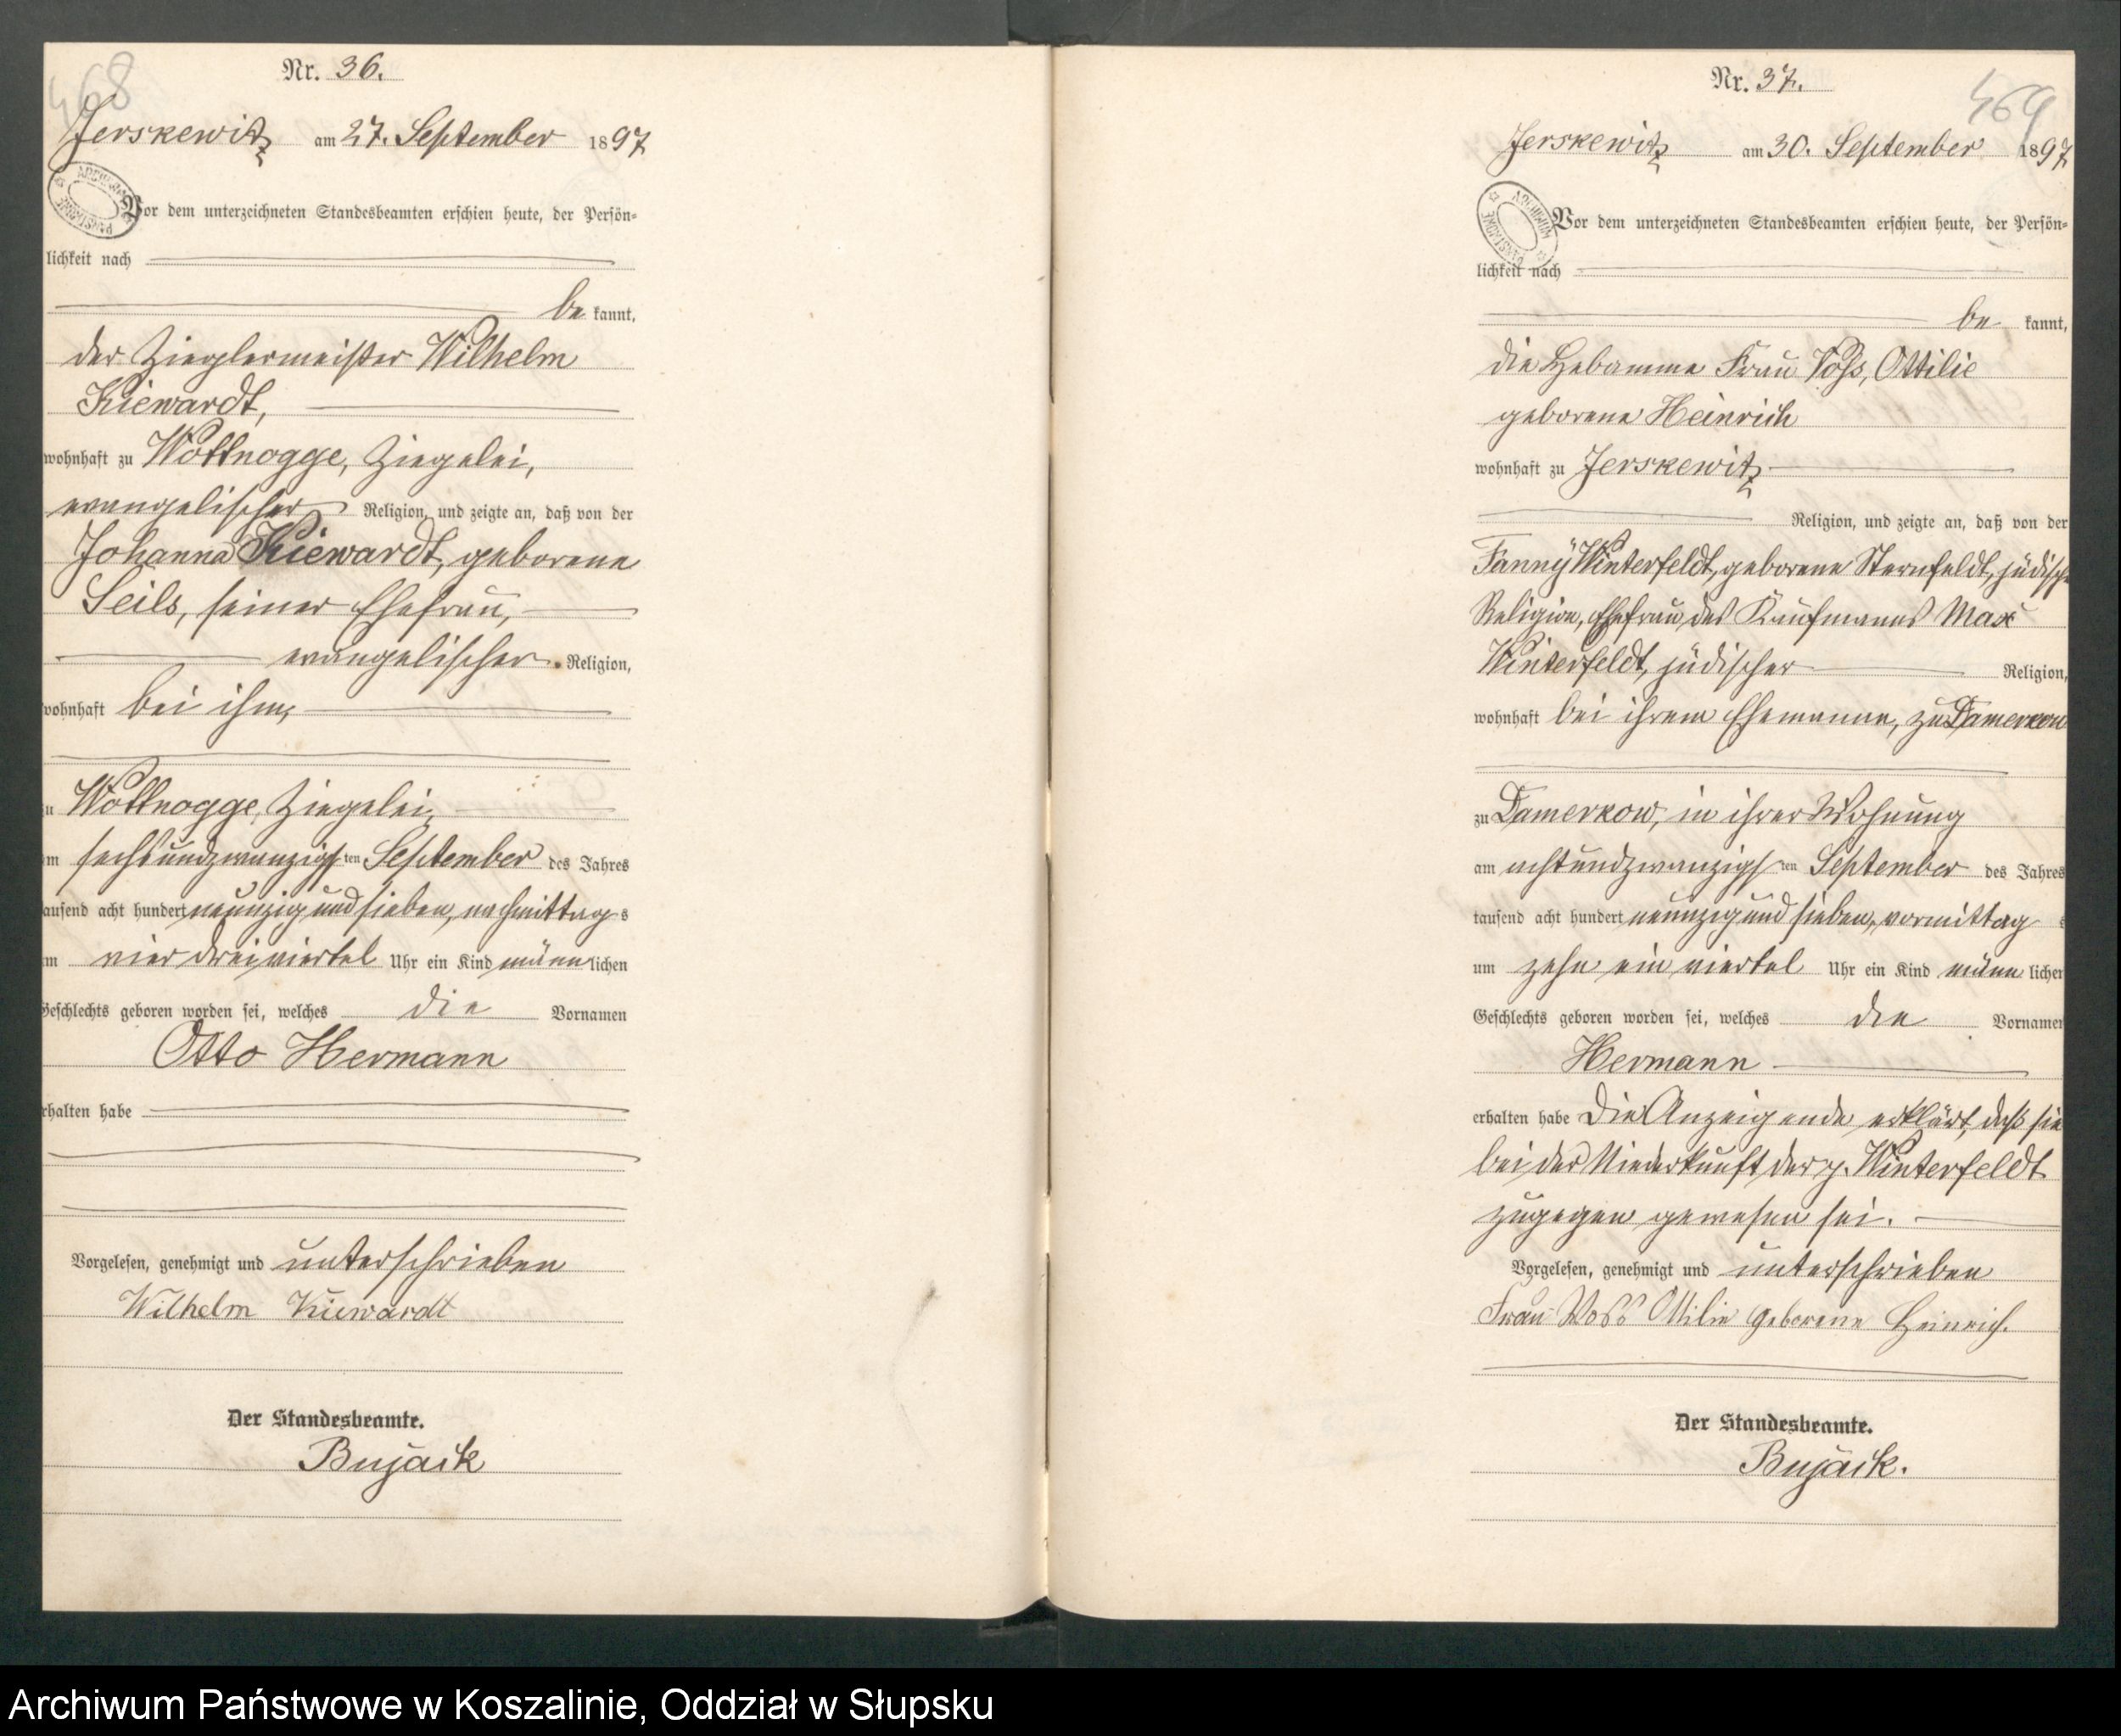 468
Nr. 36.
Jerskewitz am 27. September 1897
Vor dem unterzeichneten Standesbeamten erschien heute, der Persön-
lichkeit nach
be kannt,
der Zieglermeister Wilhelm
Kiewardt,
wohnhaft zu Wottnogge, Ziegelei,
evangelischer Religion, und zeigte an, daß von der
Johanna Kiewardt, geborene
Seils, seiner Ehefrau,
evangelischer Religion,
wohnhaft bei ihm,
zu Wottnogge, Ziegelei,
am sechsundzwanzigsten September des Jahres
tausend acht hundert neunzig und sieben, nachmittags
um vier dreiviertel Uhr ein Kind männlichen
Geschlechts geboren worden sei, welches die Vornamen
Otto Hermann
erhalten habe
Vorgelesen, genehmigt und unterschrieben
Wilhelm Kiewardt
Der Standesbeamte.
Bujack
469
Nr. 37.
Jerskewitz am 30. September 1897
ARCHIWUM PAŃSTWOWE
Vor dem unterzeichneten Standesbeamten erschien heute, der Persön-
lichkeit nach
be kannt,
die Hebamme Frau Voss, Ottilie
geborene Heinrich
wohnhaft zu Jerskewitz
Religion, und zeigte an, daß von der
Fanny Winterfeldt, geborene Sternfeldt, jüdischer
Religion, Ehefrau des Kaufmanns Max
Winterfeldt, jüdischer Religion,
wohnhaft bei ihrem Ehemanne, zu Damerkow
zu Damerkow, in ihrer Wohnung
am achtundzwanzigsten September des Jahres
tausend acht hundert neunzig und sieben, vormittags
um zehn ein viertel Uhr ein Kind männlichen
Geschlechts geboren worden sei, welches den Vornamen
Hermann
erhalten habe Die Anzeigende erklärt, daß sie
bei der Niederkunft der p. Winterfeldt
zugegen gewesen sei.
Vorgelesen, genehmigt und unterschrieben
Frau Voss Ottilie geborene Heinrich.
Der Standesbeamte.
Bujack.
Archiwum Państwowe w Koszalinie, Oddział w Słupsku